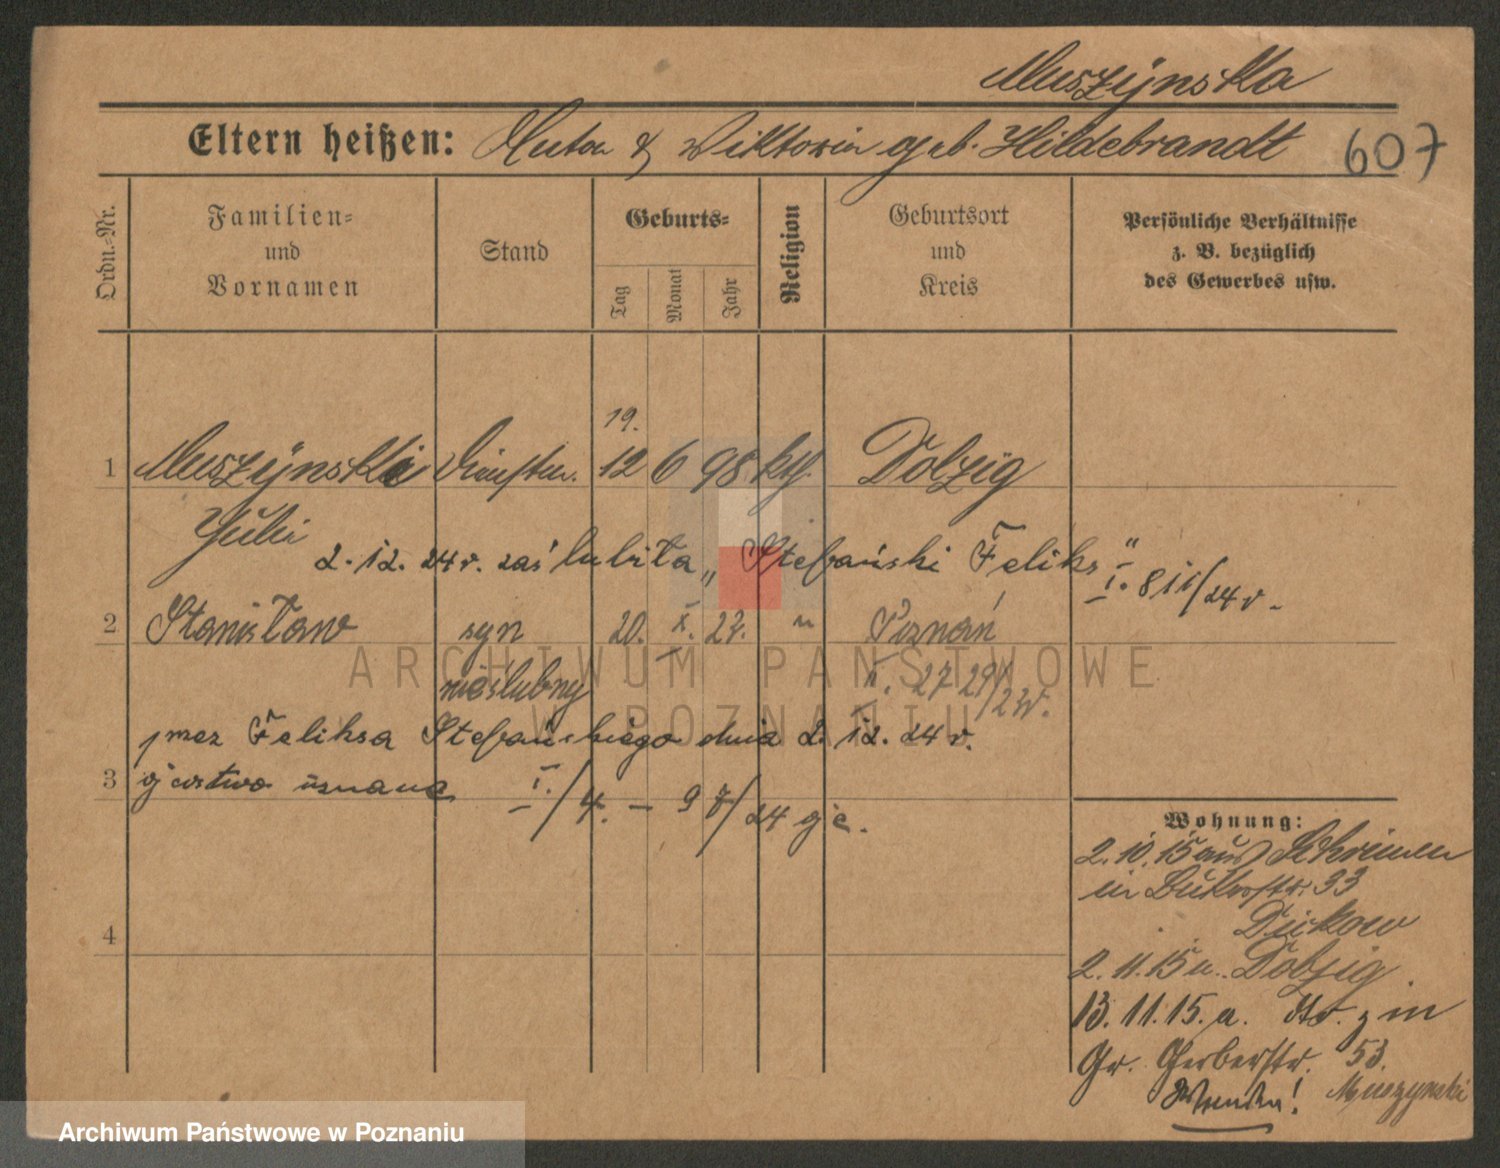 Muszyńska
Eltern heißen: & Wiktoria geb. Hildebrandt 607
Ordn.-Nr. Familien- und Vornamen Stand Geburts- Tag Monat Jahr Religion Geburtsort und Kreis Persönliche Verhältnisse z. B. bezüglich des Gewerbes usw.
19.
1 Muszyńska 12 6 98 kth. Dolzig
2.12.24 r. zaślubiła „Stefański Feliks"
I. 811/24 r.
2 Stanisław syn 20. X. 22. " Poznań
nieślubny II. 2729/22.
ARCHIWUM PAŃSTWOWE
W POZNANIU
przez Feliksa Stefańskiego dnia 2.12.24 r.
3 ojcostwo uznane I./4. — 97/24
4
Wohnung:
2.10.15 aus Schrimm
in Bukerstr. 33
2.11.15 n. Dolzig
13.11.15. a. in
Gr. Gerberstr. 53.
Wenden! Muszyński
Archiwum Państwowe w Poznaniu